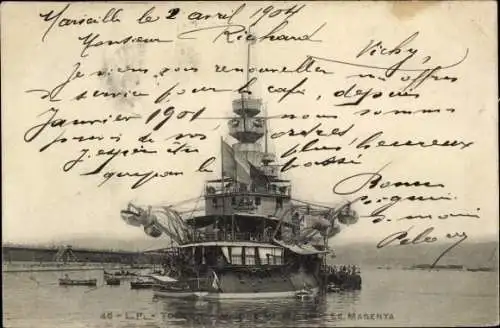 Marseille le 2 avril 1904
Monsieur Richard Vichy.
Je viens vous renouveller mes offres
de service pour le café, depuis
Janvier 1901 nous sommes
privés de vos ordres
J'espère être plus heureux
que par le passé
Bonne
poignée
de main
46 - L.P. - MAGENTA